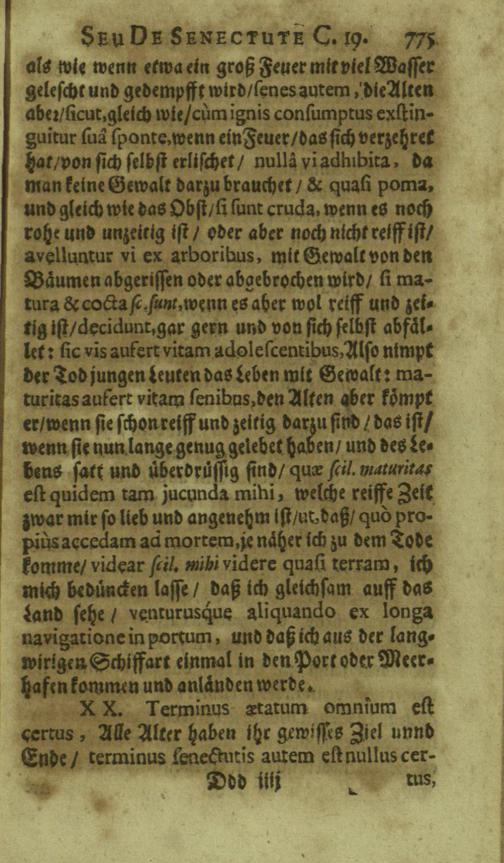 SEU DE SENECTUTE C. 19. 775
als wie wenn etwa ein groß Feuer mit viel Wasser
gelescht und gedempfft wird/ senes autem, die Alten
aber/ sicut, gleich wie/ cùm ignis consumptus exstin-
guitur suâ sponte, wenn ein Feuer/ das sich verzehret
hat/ von sich selbst erlischet/ nullâ vi adhibita, da
man keine Gewalt darzu brauchet/ & quasi poma,
und gleich wie das Obst/ si sunt cruda, wenn es noch
rohe und unzeitig ist/ oder aber noch nicht reiff ist/
avelluntur vi ex arboribus, mit Gewalt von den
Bäumen abgerissen oder abgebrochen wird/ si ma-
tura & cocta sc. sunt, wenn es aber wol reiff und zei-
tig ist/ decidunt, gar gern und von sich selbst abfäl-
let: sic vis aufert vitam adolescentibus, Also nimpt
der Tod jungen Leuten das Leben mit Gewalt: ma-
turitas aufert vitam senibus, den Alten aber kömpt
er/ wenn sie schon reiff und zeitig darzu sind/ das ist/
wenn sie nun lange genug gelebet haben/ und des Le-
bens satt und überdrüssig sind/ quæ scil. maturitas
est quidem tam jucunda mihi, welche reiffe Zeit
zwar mir so lieb und angenehm ist/ ut, daß/ quò pro-
piùs accedam ad mortem, je näher ich zu dem Tode
komme/ videar scil. mihi videre quasi terram, ich
mich bedüncken lasse/ daß ich gleichsam auff das
Land sehe/ venturusque aliquando ex longa
navigatione in portum, und daß ich aus der lang-
wirigen Schiffart einmal in den Port oder Meer-
hafen kommen und anländen werde.
XX. Terminus ætatum omnium est
certus, Alle Alter haben ihr gewisses Ziel unnd
Ende/ terminus senectutis autem est nullus cer-
Ddd iiij tus,